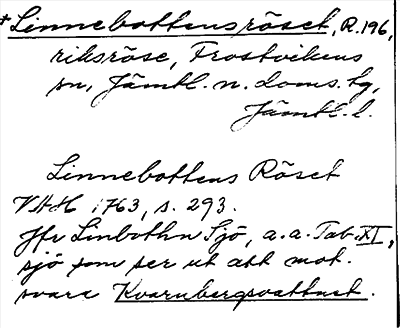 *Linnebottensröset, R. 196,
riksröse, Frostvikens
sn, Jämtl. n. doms. tg,
Jämtl. l.
Linnebottens Röset
VAH 1763, s. 293.
Jfr Linbothn Sjö, a.a. Tab. XI,
sjö som ser ut att mot-
svara Kvarnbergsvattnet.